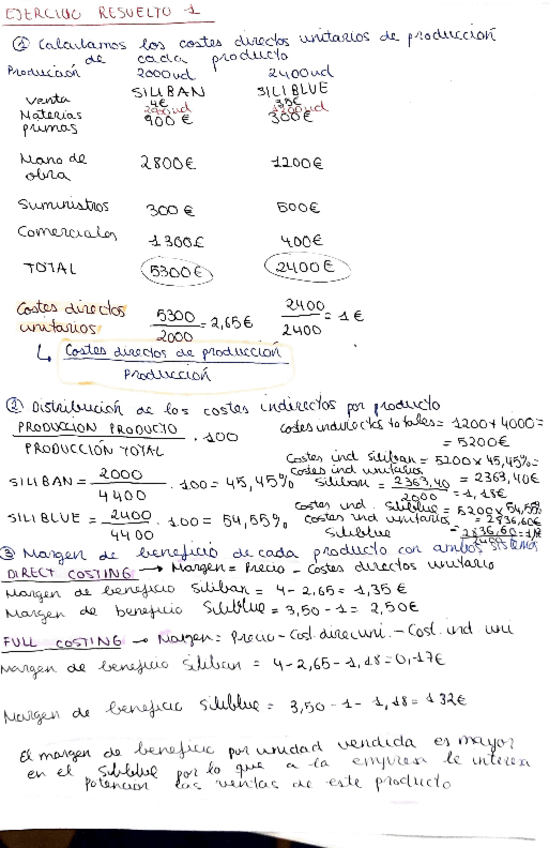 EJERCICIO RESUELTO 1
① Calculamos los costes directos unitarios de produccion
de cada producto
Producción 2000ud 2400ud
SILIBAN SILIBLUE
Venta 4€
Materias primas 900€ 300€
Mano de obra 2800€ 1200€
Suministros 300€ 500€
Comerciales 1300€ 400€
TOTAL 5300€ 2400€
Costes directos unitarios 5300/2000 = 2,65€ 2400/2400 = 1€
↳ Costes directos de producción / Producción
② Distribución de los costes indirectos por producto
PRODUCCION PRODUCTO / PRODUCCIÓN TOTAL · 100
costes indirectos totales = 1200 + 4000 =
= 5200€
SILIBAN = 2000/4400 · 100 = 45,45%
Costes ind Siliban = 5200 x 45,45% =
= 2363,40€
Costes ind unitarios Siliban = 2363,40/2000 = 1,18€
SILIBLUE = 2400/4400 · 100 = 54,55%
Costes ind. Siliblue = 5200 x 54,55%
= 2836,60€
Costes ind unitarios Siliblue
③ Margen de beneficio de cada producto con ambos sistemas
DIRECT COSTING → Margen = Precio - Costes directos unitario
Margen de beneficio Siliban = 4 - 2,65 = 1,35 €
Margen de beneficio Siliblue = 3,50 - 1 = 2,50€
FULL COSTING → Margen = Precio - Cost. direc uni. - Cost. ind uni
Margen de beneficio Siliban = 4 - 2,65 - 1,18 = 0,17€
Margen de beneficio siliblue = 3,50 - 1 - 1,18 = 1 32€
El margen de beneficio por unidad vendida es mayor
en el Siliblue por lo que a la empresa le interesa
potenciar las ventas de este producto